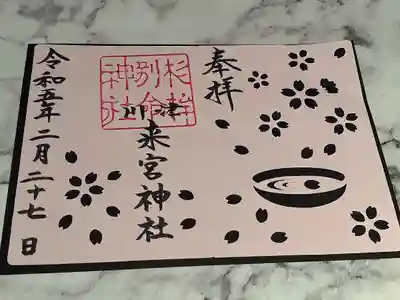 奉拝
杉桙
別命
神社
川津
来宮神社
令和五年二月二十七日